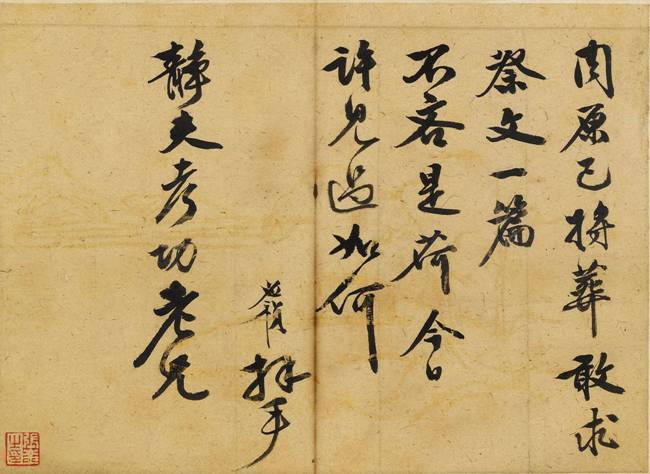 原已將葬敢求
祭文一篇
不吝是荷今日
許見過如何
拜手
靜夫考功老兄